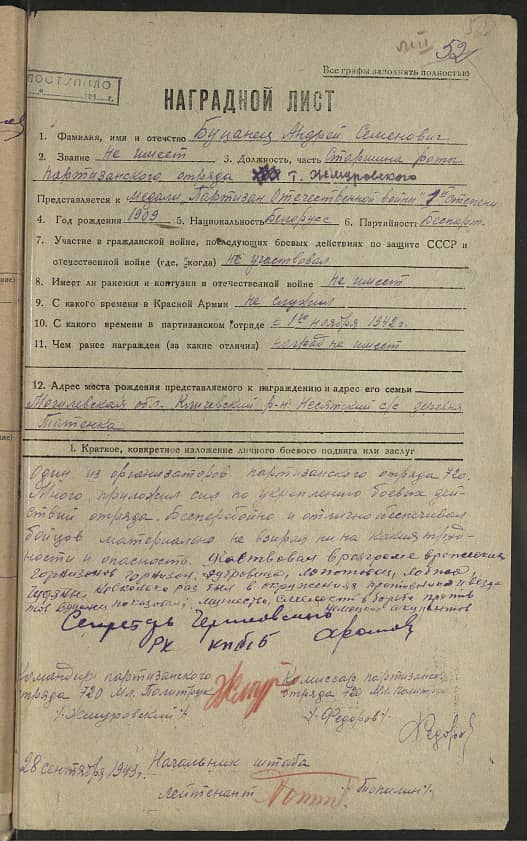 52
Все графы заполнять полностью
ПОСТУПИЛО
НАГРАДНОЙ ЛИСТ
1. Фамилия, имя и отчество Буцанец Андрей Семенович
2. Звание не имеет 3. Должность, часть Старшина роты
партизанского отряда т. Жмуровского
Представляется к медали "Партизан Отечественной войны" 1ой степени
4. Год рождения 1909 5. Национальность Белорусс 6. Партийность Беспарт.
7. Участие в гражданской войне, последующих боевых действиях по защите СССР и
отечественной войне (где, когда) не участвовал
8. Имеет ли ранения и контузии в отечественной войне не имеет
9. С какого времени в Красной Армии не служил
10. С какого времени в партизанском отряде с 1го ноября 1942 г.
11. Чем ранее награжден (за какие отличия) наград не имеет
12. Адрес места рождения представляемого к награждению и адрес его семьи
Могилевская обл. Кличевский р-н Несятский с/с деревня
I. Краткое, конкретное изложение личного боевого подвига или заслуг
Один из организаторов партизанского отряда 720.
Много приложил сил по укреплению боевых дей-
ствий отряда. Бесперебойно и отлично обеспечивал
бойцов материально не взирая ни на какие труд-
ности и опасности. Участвовал в разгроме вражеских
гарнизонов
несколько раз был в окружении противника и всегда
мужество, смелость в борьбе против
немецких оккупантов
Секретарь
РК КПбБ
Командир партизанского
отряда 720 Мл. Политрук
/Жмуровский/
Комиссар партизанского
отряда 720 Мл. Политрук
/Федоров/
28 сентября 1943 г. Начальник штаба
лейтенант /Топилин/